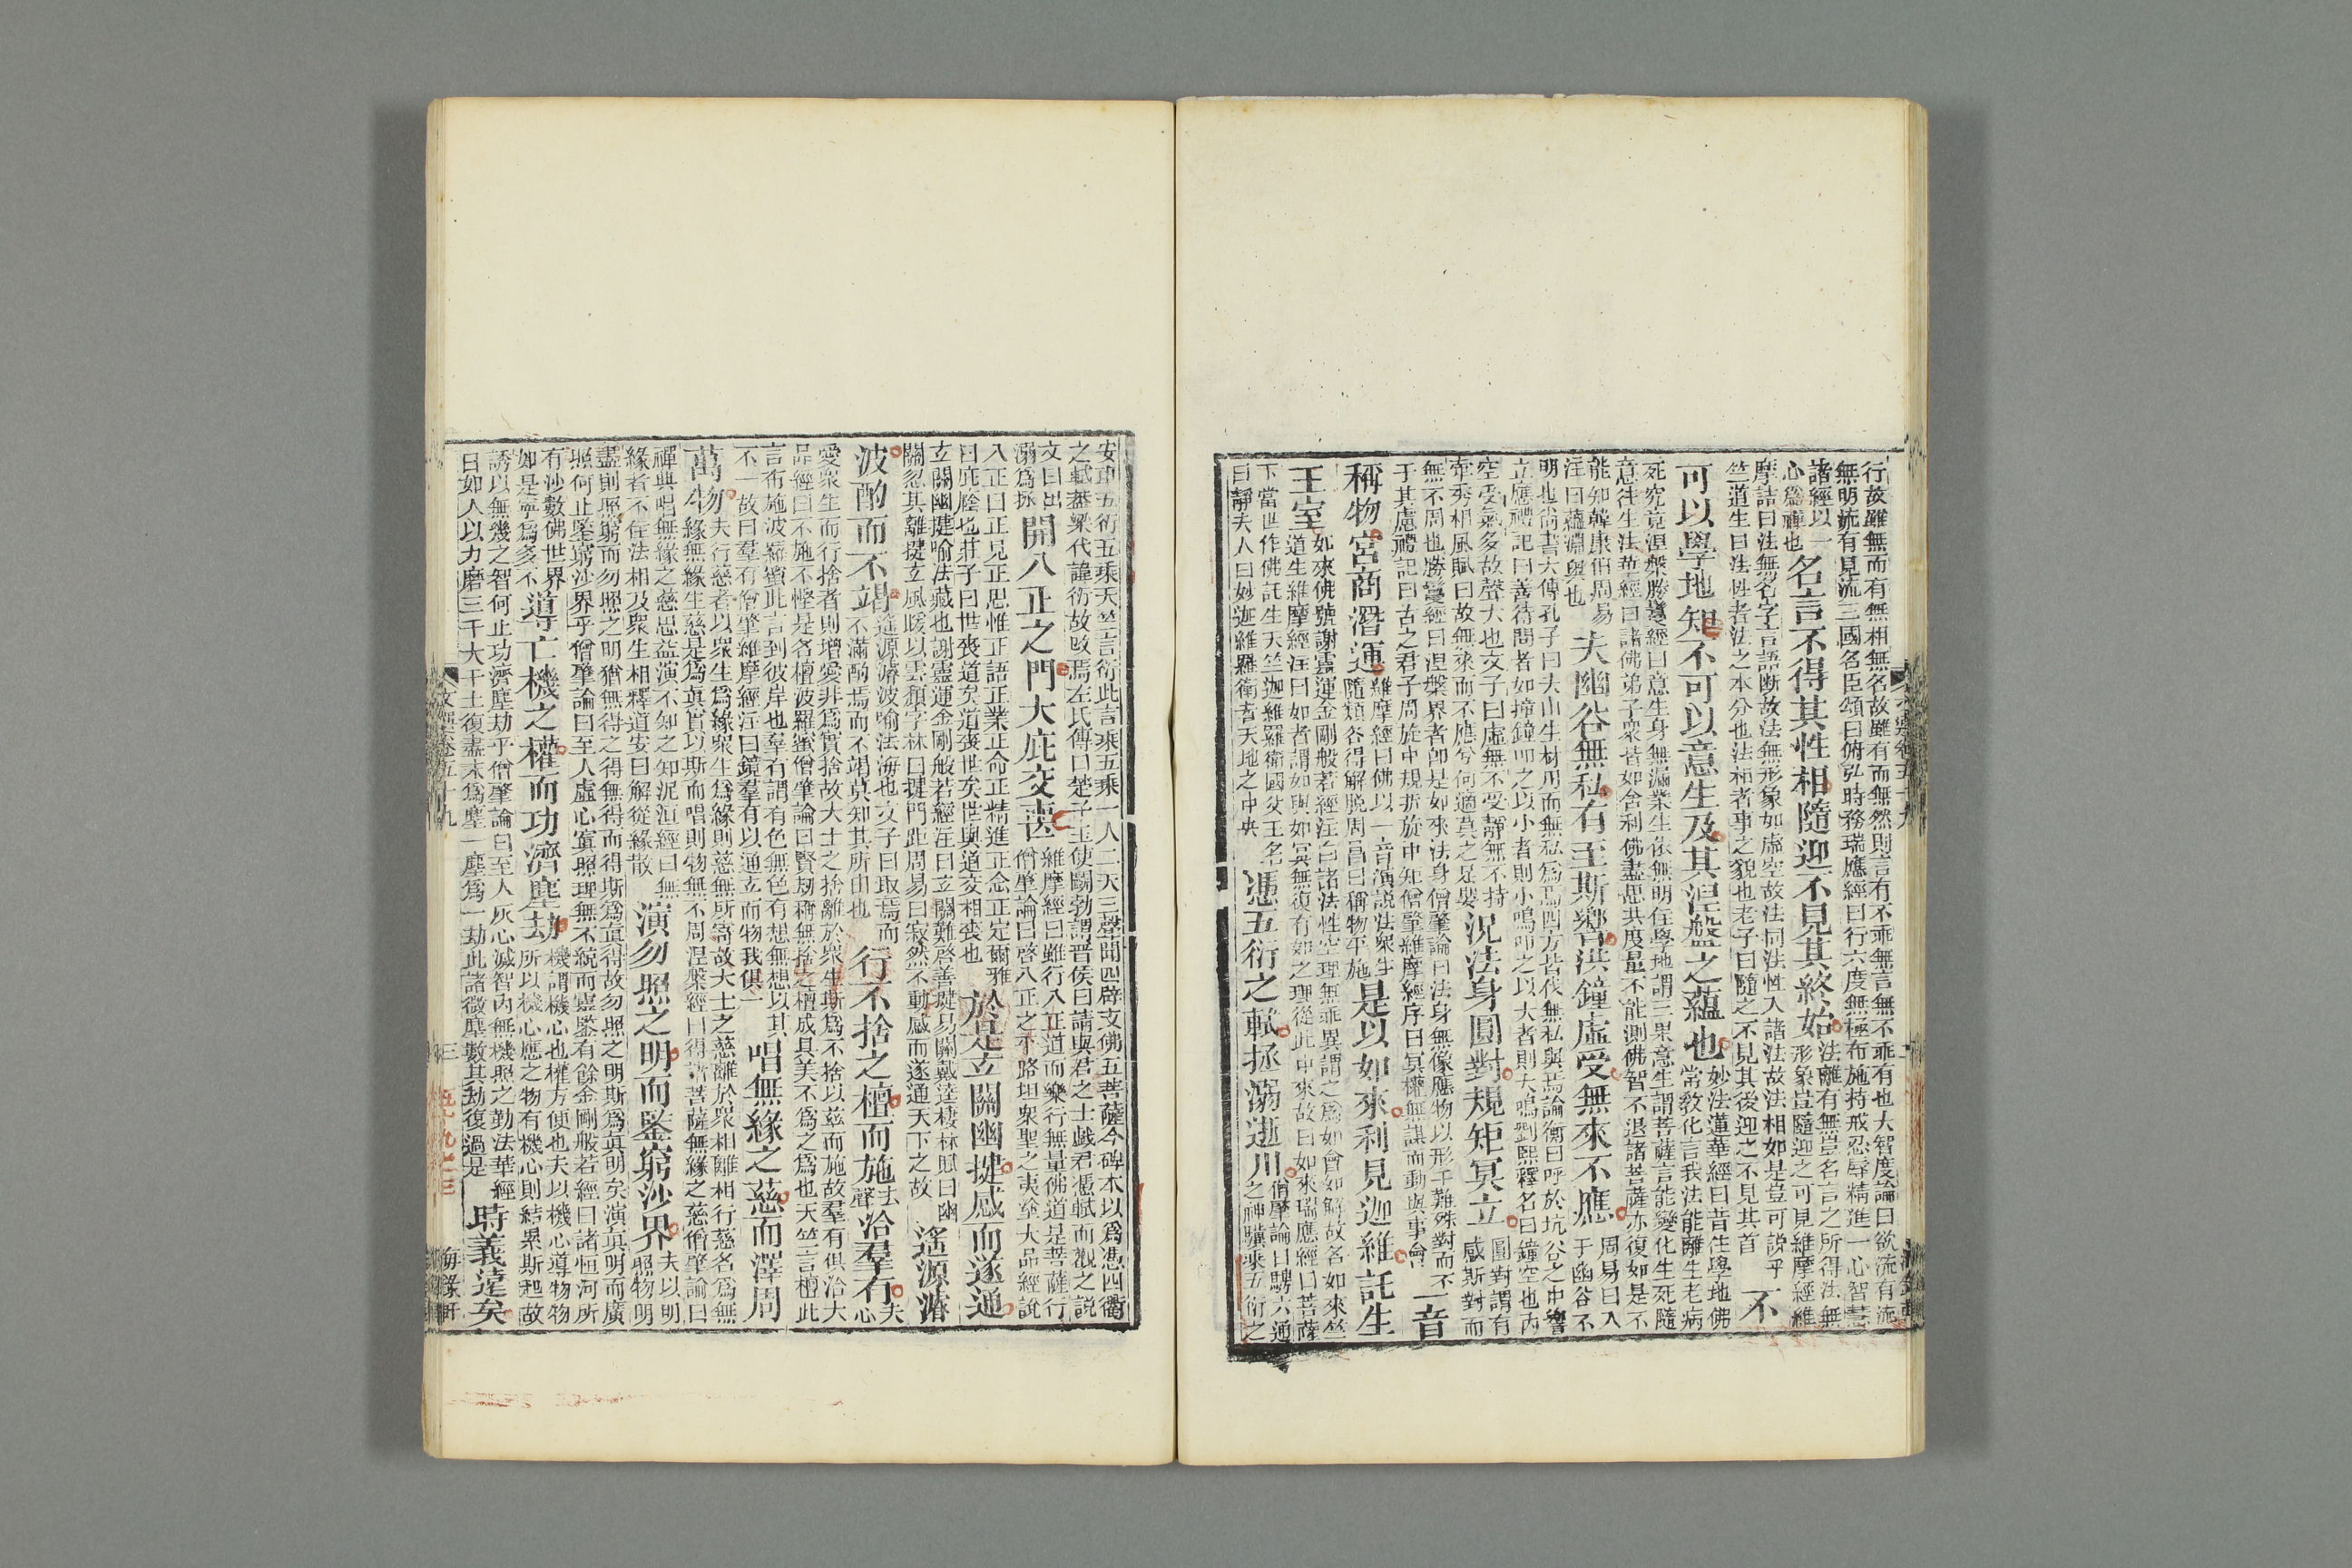 行故雖無而有無相無名故雖有而無然則言有不乖無言無不乖有也大智度論曰欲流有流
無明流有見流三國名臣頌曰俯弘時務瑞應經曰行六度無極布施持戒忍辱精進一心智慧
諸經以一
心為禪也
名言不得其性相隨迎不見其終始
法離有無豈名言之所得法無
形象豈隨迎之可見維摩經維
摩詰曰法無名字言語斷故法無形象如虛空故法同法性入諸法故法相如是豈可説乎
竺道生曰法性者法之本分也法相者事之貌也老子曰隨之不見其後迎之不見其首
不
可以學地知不可以意生及其涅盤之蘊也
妙法蓮華經曰昔住學地佛
常敎化言我法能離生老病
死究竟涅槃勝鬘經曰意生身無漏業生依無明住學地謂三果意生謂菩薩言能變化生死隨
意往生法華經曰諸佛弟子衆皆如舍利佛盡思共度量不能測佛智不退諸菩薩亦復如是不
能知韓康伯周易
注曰蘊淵奧也
夫幽谷無私有至斯響洪鐘虛受無來不應
周易曰入
于幽谷不
明也尚書大傳孔子曰夫山生材用而無私為焉四方皆伐無私與焉論衡曰呼於坑谷之中響
立應禮記曰善待問者如撞鐘叩之以小者則小鳴叩之以大者則大鳴劉熙釋名曰鐘空也內
空受氣多故聲大也文子曰虛無不受靜無不持
牽秀相風賦曰故無來而不應兮何適莫之足嬰
況法身圓對規矩冥立
圓對謂有
感斯對而
無不周也勝鬘經曰涅槃界者卽是如來法身僧肇論曰法身無像應物以形千難殊對而不
于其慮禮記曰古之君子周旋中規折旋中矩僧肇維摩經序曰冥權無謀而動與事會
一音
稱物宮商潛運
維摩經曰佛以一音演説法衆生
隨類各得解脫周易曰稱物平施
是以如來利見迦維託生
王室
如來佛號謝靈運金剛般若經注曰諸法性空理無乖異謂之為如會如解故名如來竺
道生維摩經注曰如者謂如與如冥無復有如之理從此中來故曰如來瑞應經曰菩薩
下當世作佛託生天竺迦維羅衞國父王名
曰靜夫人曰妙迦維羅衞者天地之中央
憑五衍之軾拯溺逝川
僧肇論曰騁六通
之神驥乘五衍之
安車五衍五乘天竺言衍此言乘五乘一人二天三聲聞四辟支佛五菩薩今碑本以為憑四衢
之軾蓋梁代諱衍故改焉左氏傳曰楚子玉使鬬勃謂晋侯曰請與君之士戲君憑軾而觀之説
文曰出
溺為拯
開八正之門大庇交喪
維摩經曰雖行八正道而樂行無量佛道是菩薩行
僧肇論曰啓八正之平路坦衆聖之夷塗大品經説
八正曰正見正思惟正語正業正命正精進正念正定爾雅
曰庇廕也莊子曰世喪道矣道喪世矣世與道交相喪也
於是玄關幽揵感而遂通
玄關幽揵喻法藏也謝靈運金剛般若經注曰玄關難啓善揵易關戴逵棲林賦曰幽
關忽其離揵玄風暖以雲頹字林曰揵門距周易曰寂然不動感而遂通天下之故
遙源濬
波酌而不竭
遙源濬波喻法海也文子曰取焉而
不滿酌焉而不竭莫知其所由也
行不捨之檀而施洽羣有
夫
心
愛衆生而行捨者則增愛非為實捨故大士之捨離於衆生斯為不捨以茲而施故羣有俱洽大
品經曰不施不慳是名檀波羅蜜僧肇論曰賢劫稱無捨之檀成具美不為之為也天竺言檀此
言布施波羅蜜此言到彼岸也羣有謂有色無色有想無想以其
不一故曰羣有僧肇維摩經注曰鏡羣有以通玄而物我俱一
唱無緣之慈而澤周
萬物
夫行慈者以衆生為緣衆生為緣則慈無所寄故大士之慈離於衆相離相行慈名為無
緣無緣生慈是為真實以斯而唱則物無不周涅槃經曰得諸菩薩無緣之慈僧肇論曰
禪典唱無緣之慈思益演不知之知泥洹經曰無
緣者不住法相及衆生相釋道安曰解從緣散
演勿照之明而鑒窮沙界
夫以明
照物明
盡則照窮而勿照之明猶無得之得無得而得斯為真得故勿照之明斯為真明矣演真明而廣
照何止鑒窮沙界乎僧肇論曰至人虛心實照理無不統而靈鑒有餘金剛般若經曰諸恒河所
有沙數佛世界
如是寧為多不
導亡機之權而功濟塵劫
機謂機心也權方便也夫以機心導物物
所以機心應之物有機心則結累斯起故
誘以無幾之智何止功濟塵劫乎僧肇論曰至人灰心滅智內無機照之勤法華經
曰如人以力磨三千大千土復盡末為塵一塵為一劫此諸微塵數其劫復過是
時義遠矣
文選卷五十九
三
海錄軒